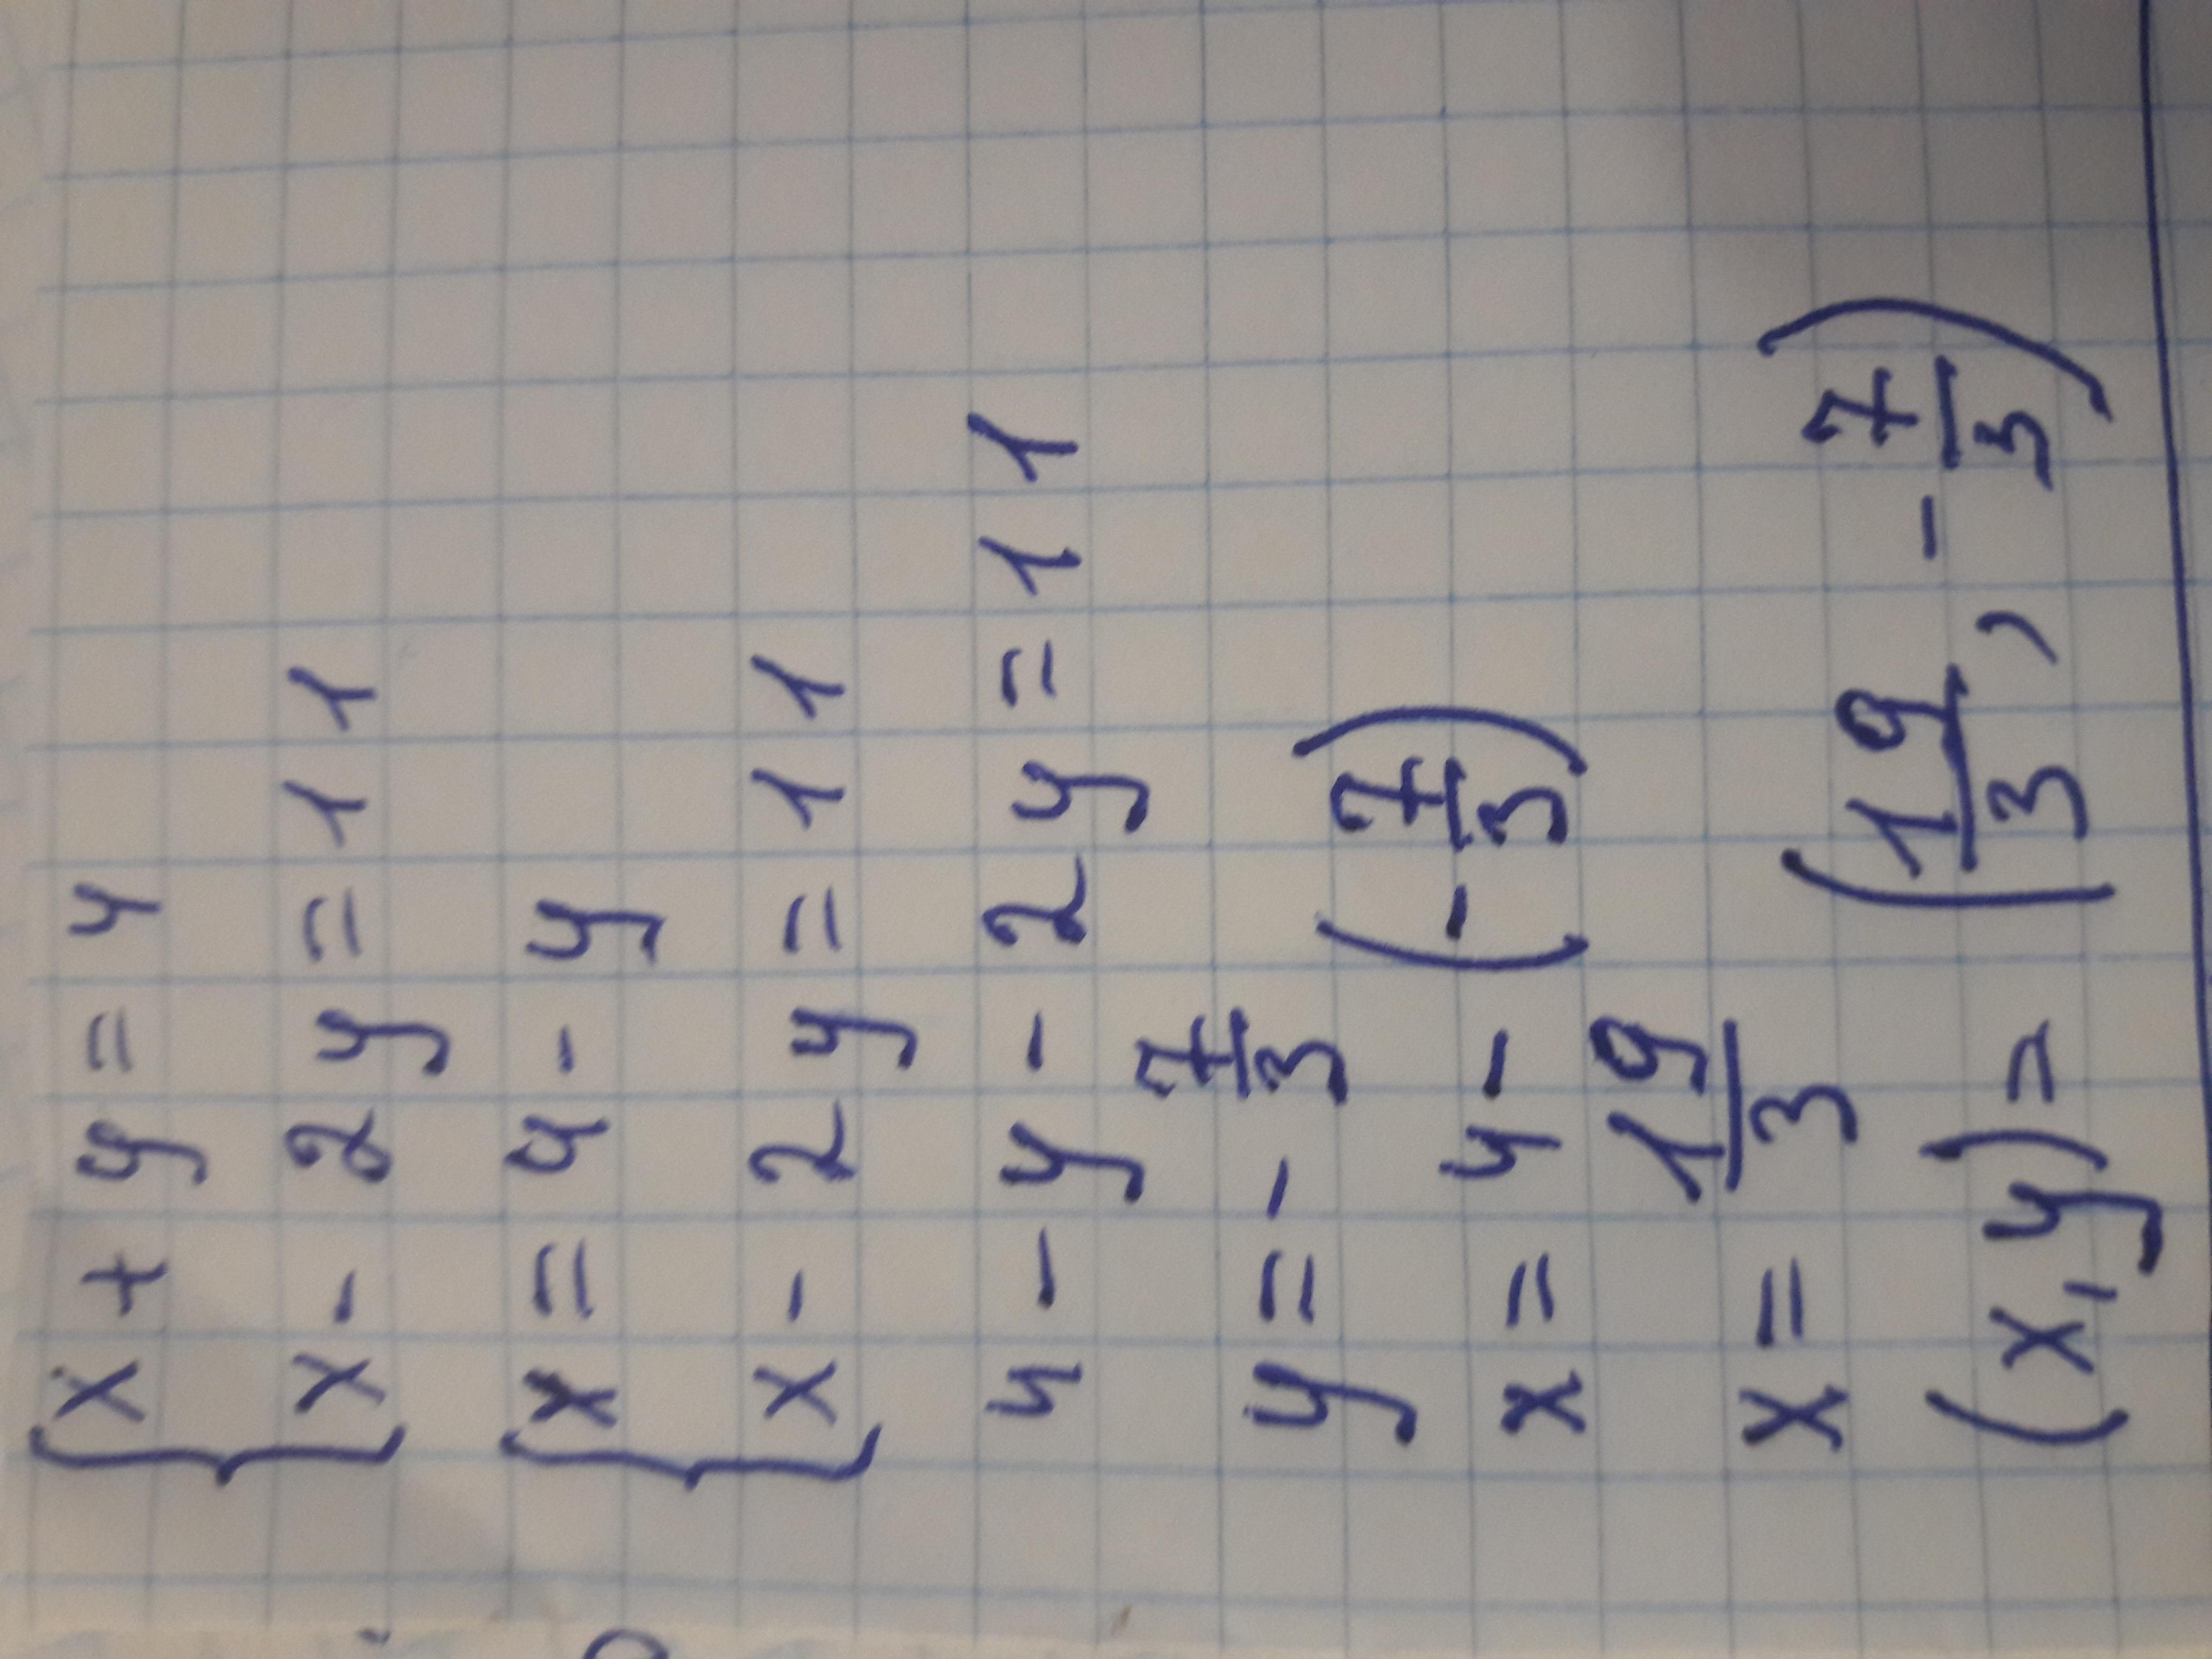 {x + y = 4
{x - 2y = 11
{x = 4 - y
{x - 2y = 11
4 - y - 2y = 11
y = - 7/3
x = 4 - (- 7/3)
x = 19/3
(x, y) = (19/3, - 7/3)